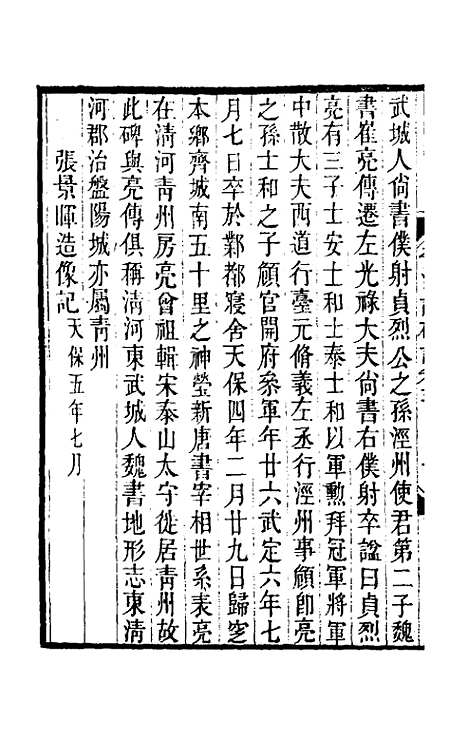 武城人尚書僕射貞烈公之孫涇州使君第二子魏
書崔亮傳遷左光祿大夫尚書右僕射卒諡曰貞烈
亮有三子士安士和士泰士和以軍勲拜冠軍將軍
中散大夫西道行臺元脩義左丞行涇州事頠卽亮
之孫士和之子頠官開府叅軍年廿六武定六年七
月七日卒於鄴都寢舍天保四年二月廿九日歸窆
本鄉齊城南五十里之神塋新唐書宰相世系表亮
在淸河靑州房亮曾祖輯宋泰山太守徙居靑州故
此碑與亮傳俱稱淸河東武城人魏書地形志東淸
河郡治盤陽城亦屬靑州
張景暉造像記天保五年七月